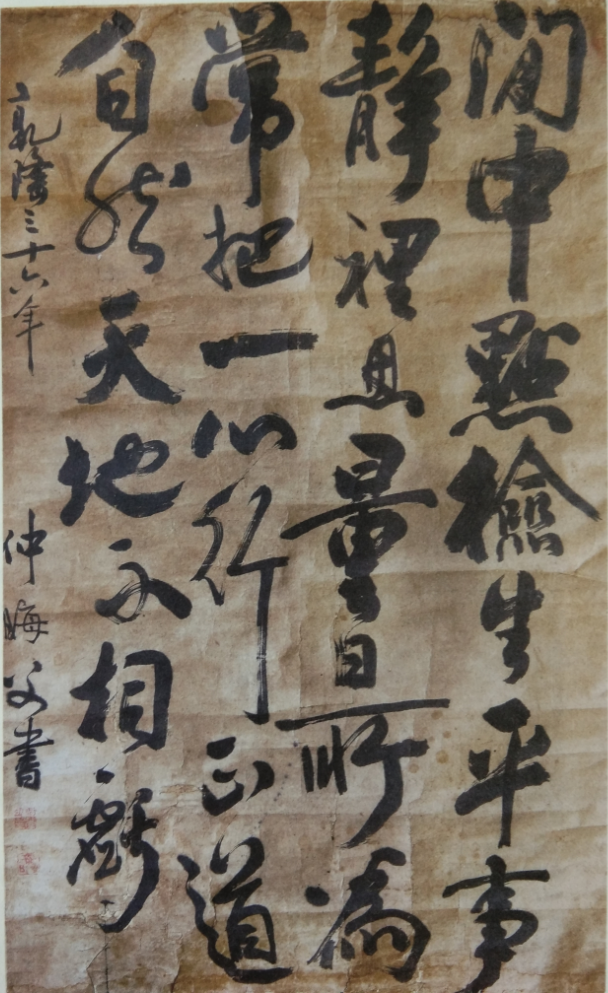 閒中點檢生平事
靜裡思量日所為
常把一心行正道
自然天地不相虧
乾隆三十六年
仲晦父書